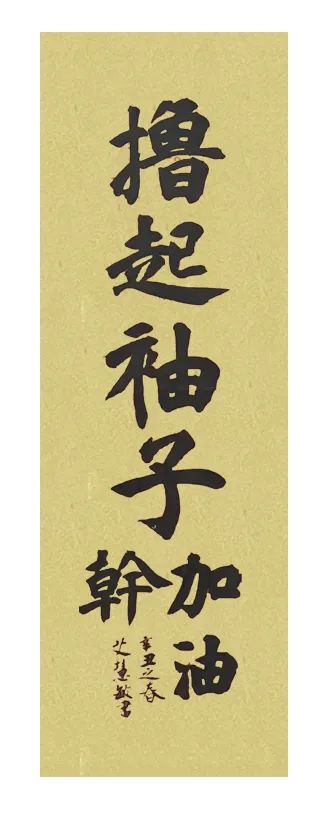 撸起袖子
加油
幹
辛丑之春
艾慧敏書